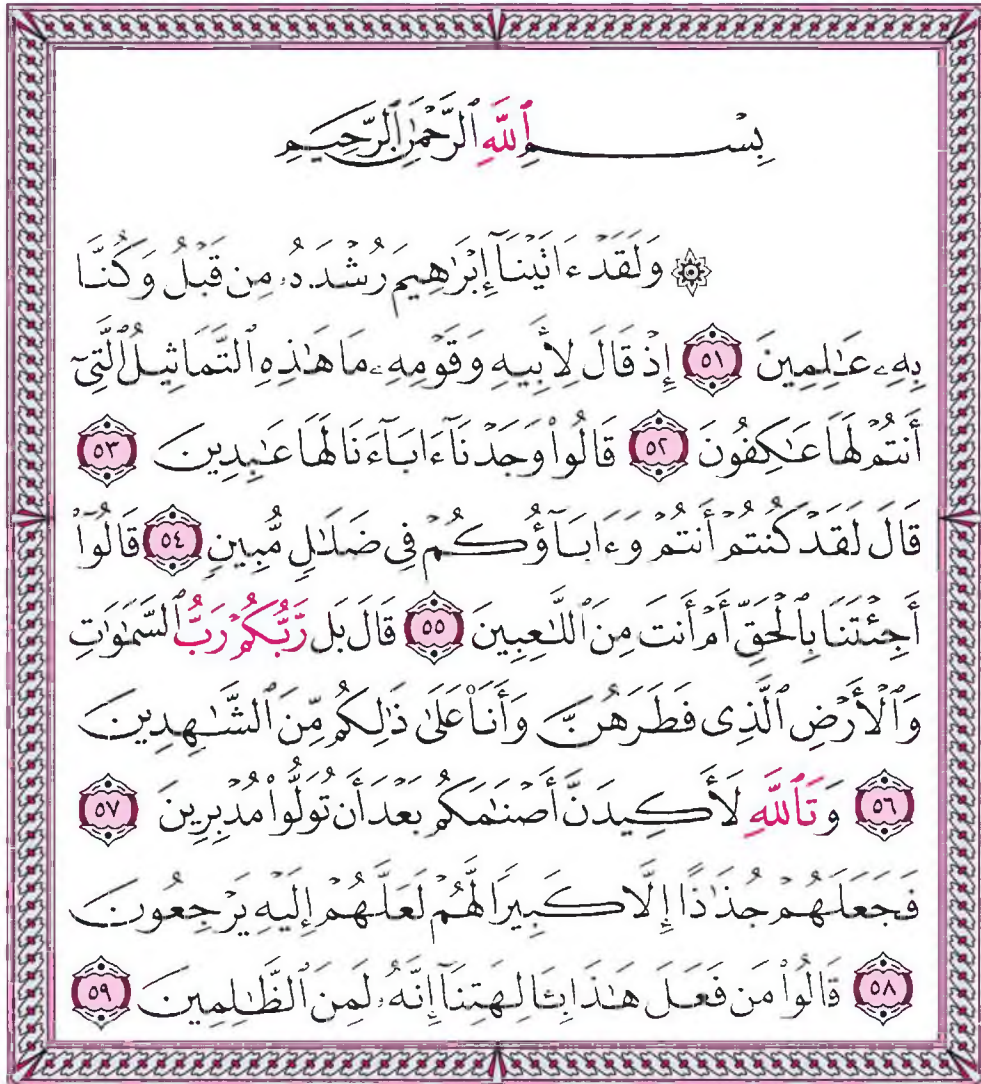 بِسْمِ ٱللَّهِ ٱلرَّحْمَٰنِ ٱلرَّحِيمِ
۞ وَلَقَدْ ءَاتَيْنَآ إِبْرَٰهِيمَ رُشْدَهُۥ مِن قَبْلُ وَكُنَّا
بِهِۦ عَٰلِمِينَ ٥١ إِذْ قَالَ لِأَبِيهِ وَقَوْمِهِۦ مَا هَٰذِهِ ٱلتَّمَاثِيلُ ٱلَّتِىٓ
أَنتُمْ لَهَا عَٰكِفُونَ ٥٢ قَالُوا۟ وَجَدْنَآ ءَابَآءَنَا لَهَا عَٰبِدِينَ ٥٣
قَالَ لَقَدْ كُنتُمْ أَنتُمْ وَءَابَآؤُكُمْ فِى ضَلَٰلٍ مُّبِينٍ ٥٤ قَالُوٓا۟
أَجِئْتَنَا بِٱلْحَقِّ أَمْ أَنتَ مِنَ ٱللَّٰعِبِينَ ٥٥ قَالَ بَل رَّبُّكُمْ رَبُّ ٱلسَّمَٰوَٰتِ
وَٱلْأَرْضِ ٱلَّذِى فَطَرَهُنَّ وَأَنَا۠ عَلَىٰ ذَٰلِكُم مِّنَ ٱلشَّٰهِدِينَ
٥٦ وَتَٱللَّهِ لَأَكِيدَنَّ أَصْنَٰمَكُم بَعْدَ أَن تُوَلُّوا۟ مُدْبِرِينَ ٥٧
فَجَعَلَهُمْ جُذَٰذًا إِلَّا كَبِيرًا لَّهُمْ لَعَلَّهُمْ إِلَيْهِ يَرْجِعُونَ
٥٨ قَالُوا۟ مَن فَعَلَ هَٰذَا بِـَٔالِهَتِنَآ إِنَّهُۥ لَمِنَ ٱلظَّٰلِمِينَ ٥٩